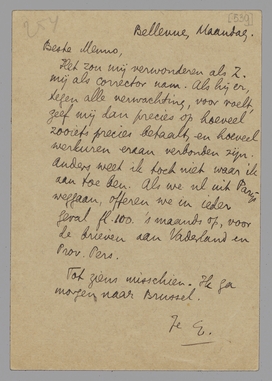 254 [539]
Bellevue, Maandag.
Beste Menno,
Het zou mij verwonderen als Z.
mij als corrector nam. Als hij er,
tegen alle verwachting, voor voelt,
geef mij dan precies op hoeveel
zooiets precies betaalt, en hoeveel
werkuren eraan verbonden zijn.
Anders weet ik toch niet waar ik
aan toe ben. Als we nl. uit Parijs
weggaan, offeren we in ieder
geval fl. 100. 's maands op, voor
de brieven aan Vaderland en
Prov. Pers.
Tot ziens misschien. Ik ga
morgen naar Brussel.
Je E.